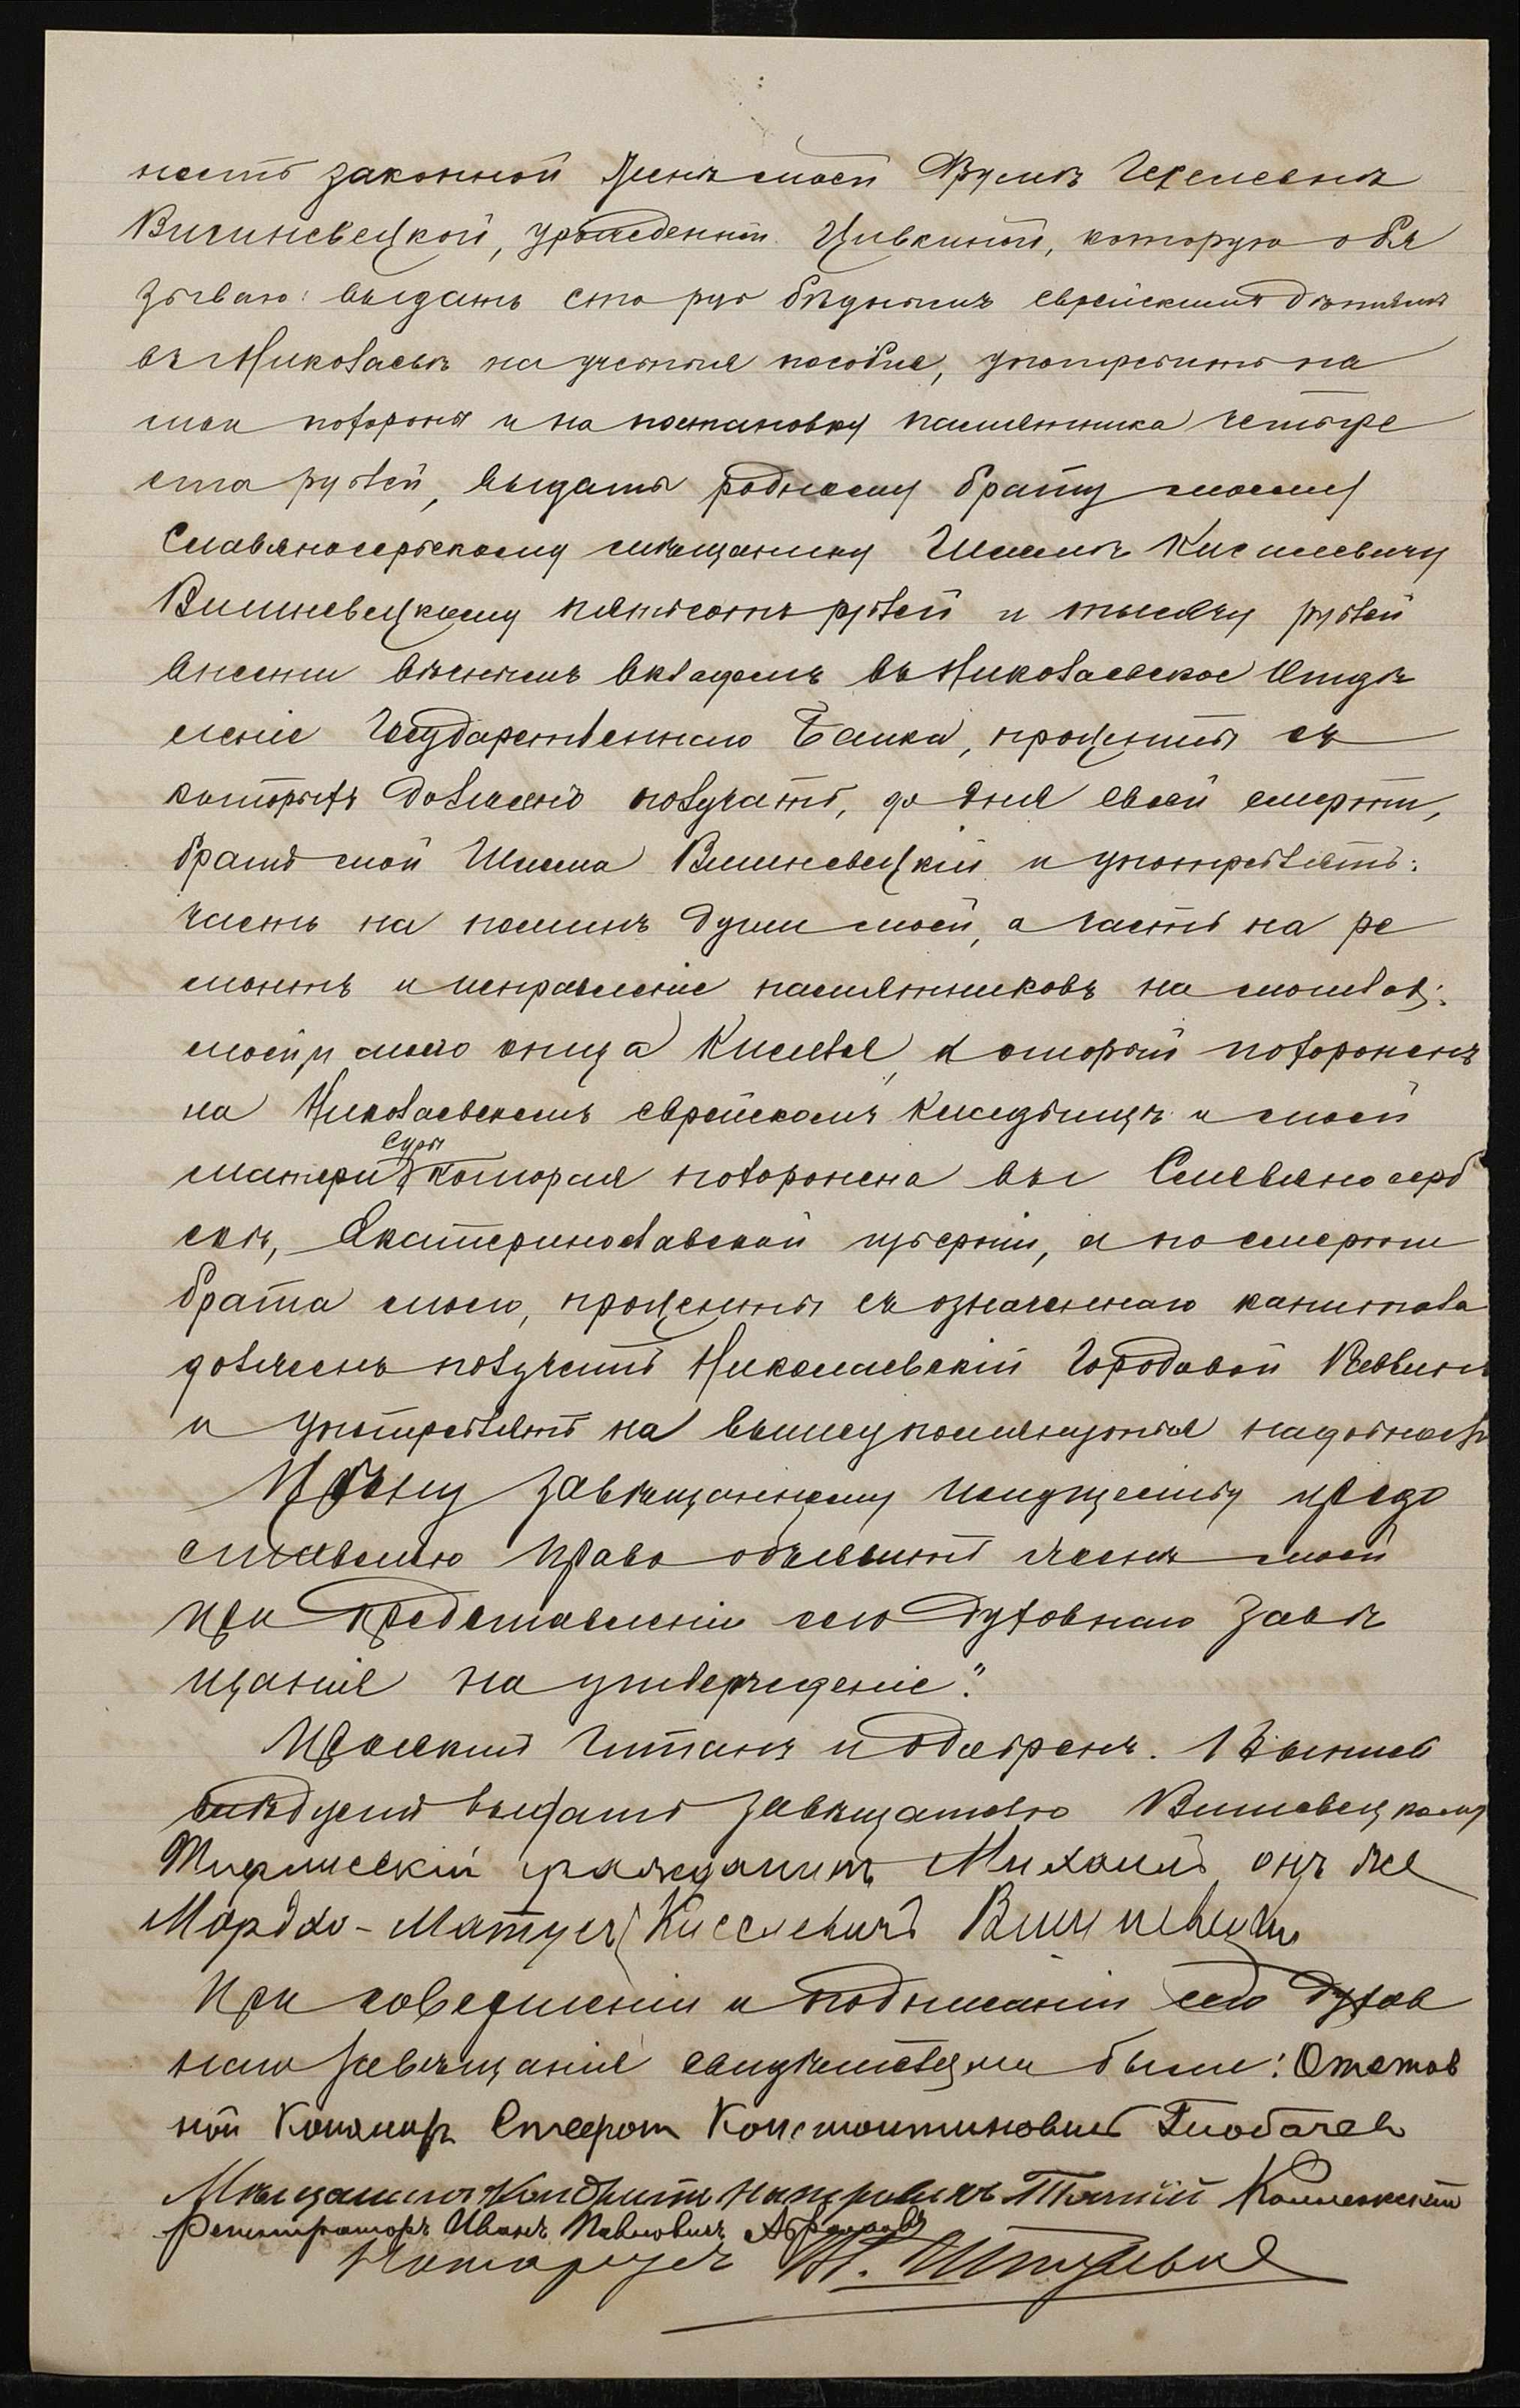 ность законной женѣ моей Фрумѣ Гехелевнѣ
Вишневецкой, урожденной Цивкиной, которую обя
зываю: выдать сто руб бѣднымъ еврейскимъ дѣтямъ
въ Николаевѣ на учебныя пособія, употребить на
мои похороны и на постановку памятника четыре
ста рублей, выдать родному брату моему
Славяносербскому мѣщанину Шлемѣ Киселевичу
Вишневецкому пятьсотъ рублей и тысячу рублей
внести вѣчнымъ вкладомъ въ Николаевское Отдѣ
леніе Государственнаго Банка, проценты съ
которыхъ долженъ получать, до дня своей смерти,
братъ мой Шлема Вишневецкій и употреблять:
часть на поминъ души моей, а часть на ре
монтъ и исправленіе памятниковъ на могилахъ:
моей и моего отца Киселя, который похороненъ
на Николаевскомъ еврейскомъ кладбищѣ и моей
матери Суры которая похоронена въ г Славяносерб
скѣ, Екатеринославской губерніи, а по смерти
брата моего, проценты съ означеннаго капитала
долженъ получать Николаевскій Городовой Раввинъ
и употреблять на вышеупомянутыя надобности
Цѣну завѣщанному имуществу предо
ставляю право объявить женѣ моей
при представленіи сего духовнаго завѣ
щанія на утвержденіе."
Проектъ читанъ и одобренъ. Выпись
слѣдуетъ выдать завѣщателю Вишневецкому
Тифлисскій гражданинъ Михаилъ онъ же
Мордхо-Матусъ Киселевичъ Вишневецкій
При совершеніи и подписаніи сего духов
наго завѣщанія свидѣтелями были: Отстав
ной Константиновичъ
Мѣщанинъ Кондратъ Петровичъ Коллежскій
Регистраторъ Иванъ Павловичъ
Нотаріусъ